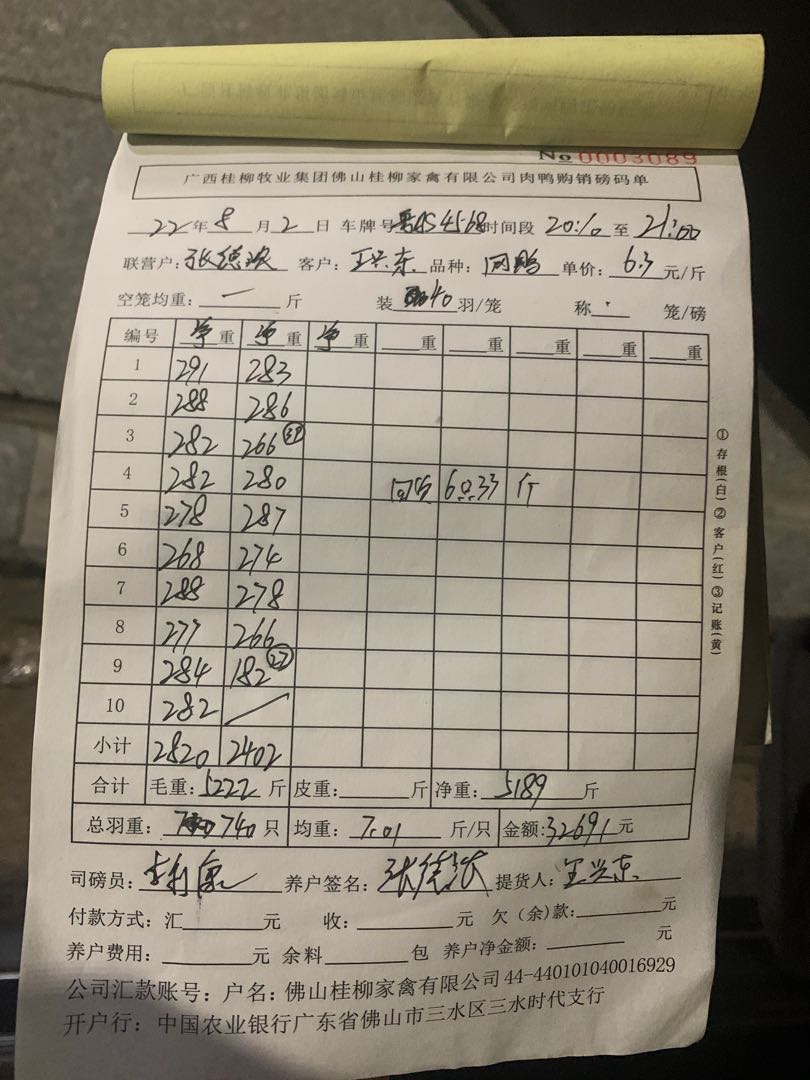 No 0003089
广西桂柳牧业集团佛山桂柳家禽有限公司肉鸭购销磅码单
22年8月2日 车牌号 4568 时间段 20:10 至 21:00
联营户: 张德 客户: 王兴东 品种: 单价: 6.3 元/斤
空笼均重: 一 斤 装 40 羽/笼 称 笼/磅
编号 净重 净重 净重 重 重 重 重 重
1 291 283
2 288 286
3 282 266
4 282 280 回 33 斤
5 278 287
6 268 274
7 288 278
8 277 266
9 284 182 27
10 282
小计 2820 2402
合计 毛重: 5222 斤 皮重: 斤 净重: 5189 斤
总羽重: 740 只 均重: 7.01 斤/只 金额: 32691 元
司磅员: 养户签名: 张德 提货人: 王兴东
付款方式: 汇 元 收: 元 欠(余)款: 元
养户费用: 元 余料 包 养户净金额: 元
公司汇款账号: 户名: 佛山桂柳家禽有限公司 44-440101040016929
开户行: 中国农业银行广东省佛山市三水区三水时代支行
①存根(白)②客户(红)③记账(黄)